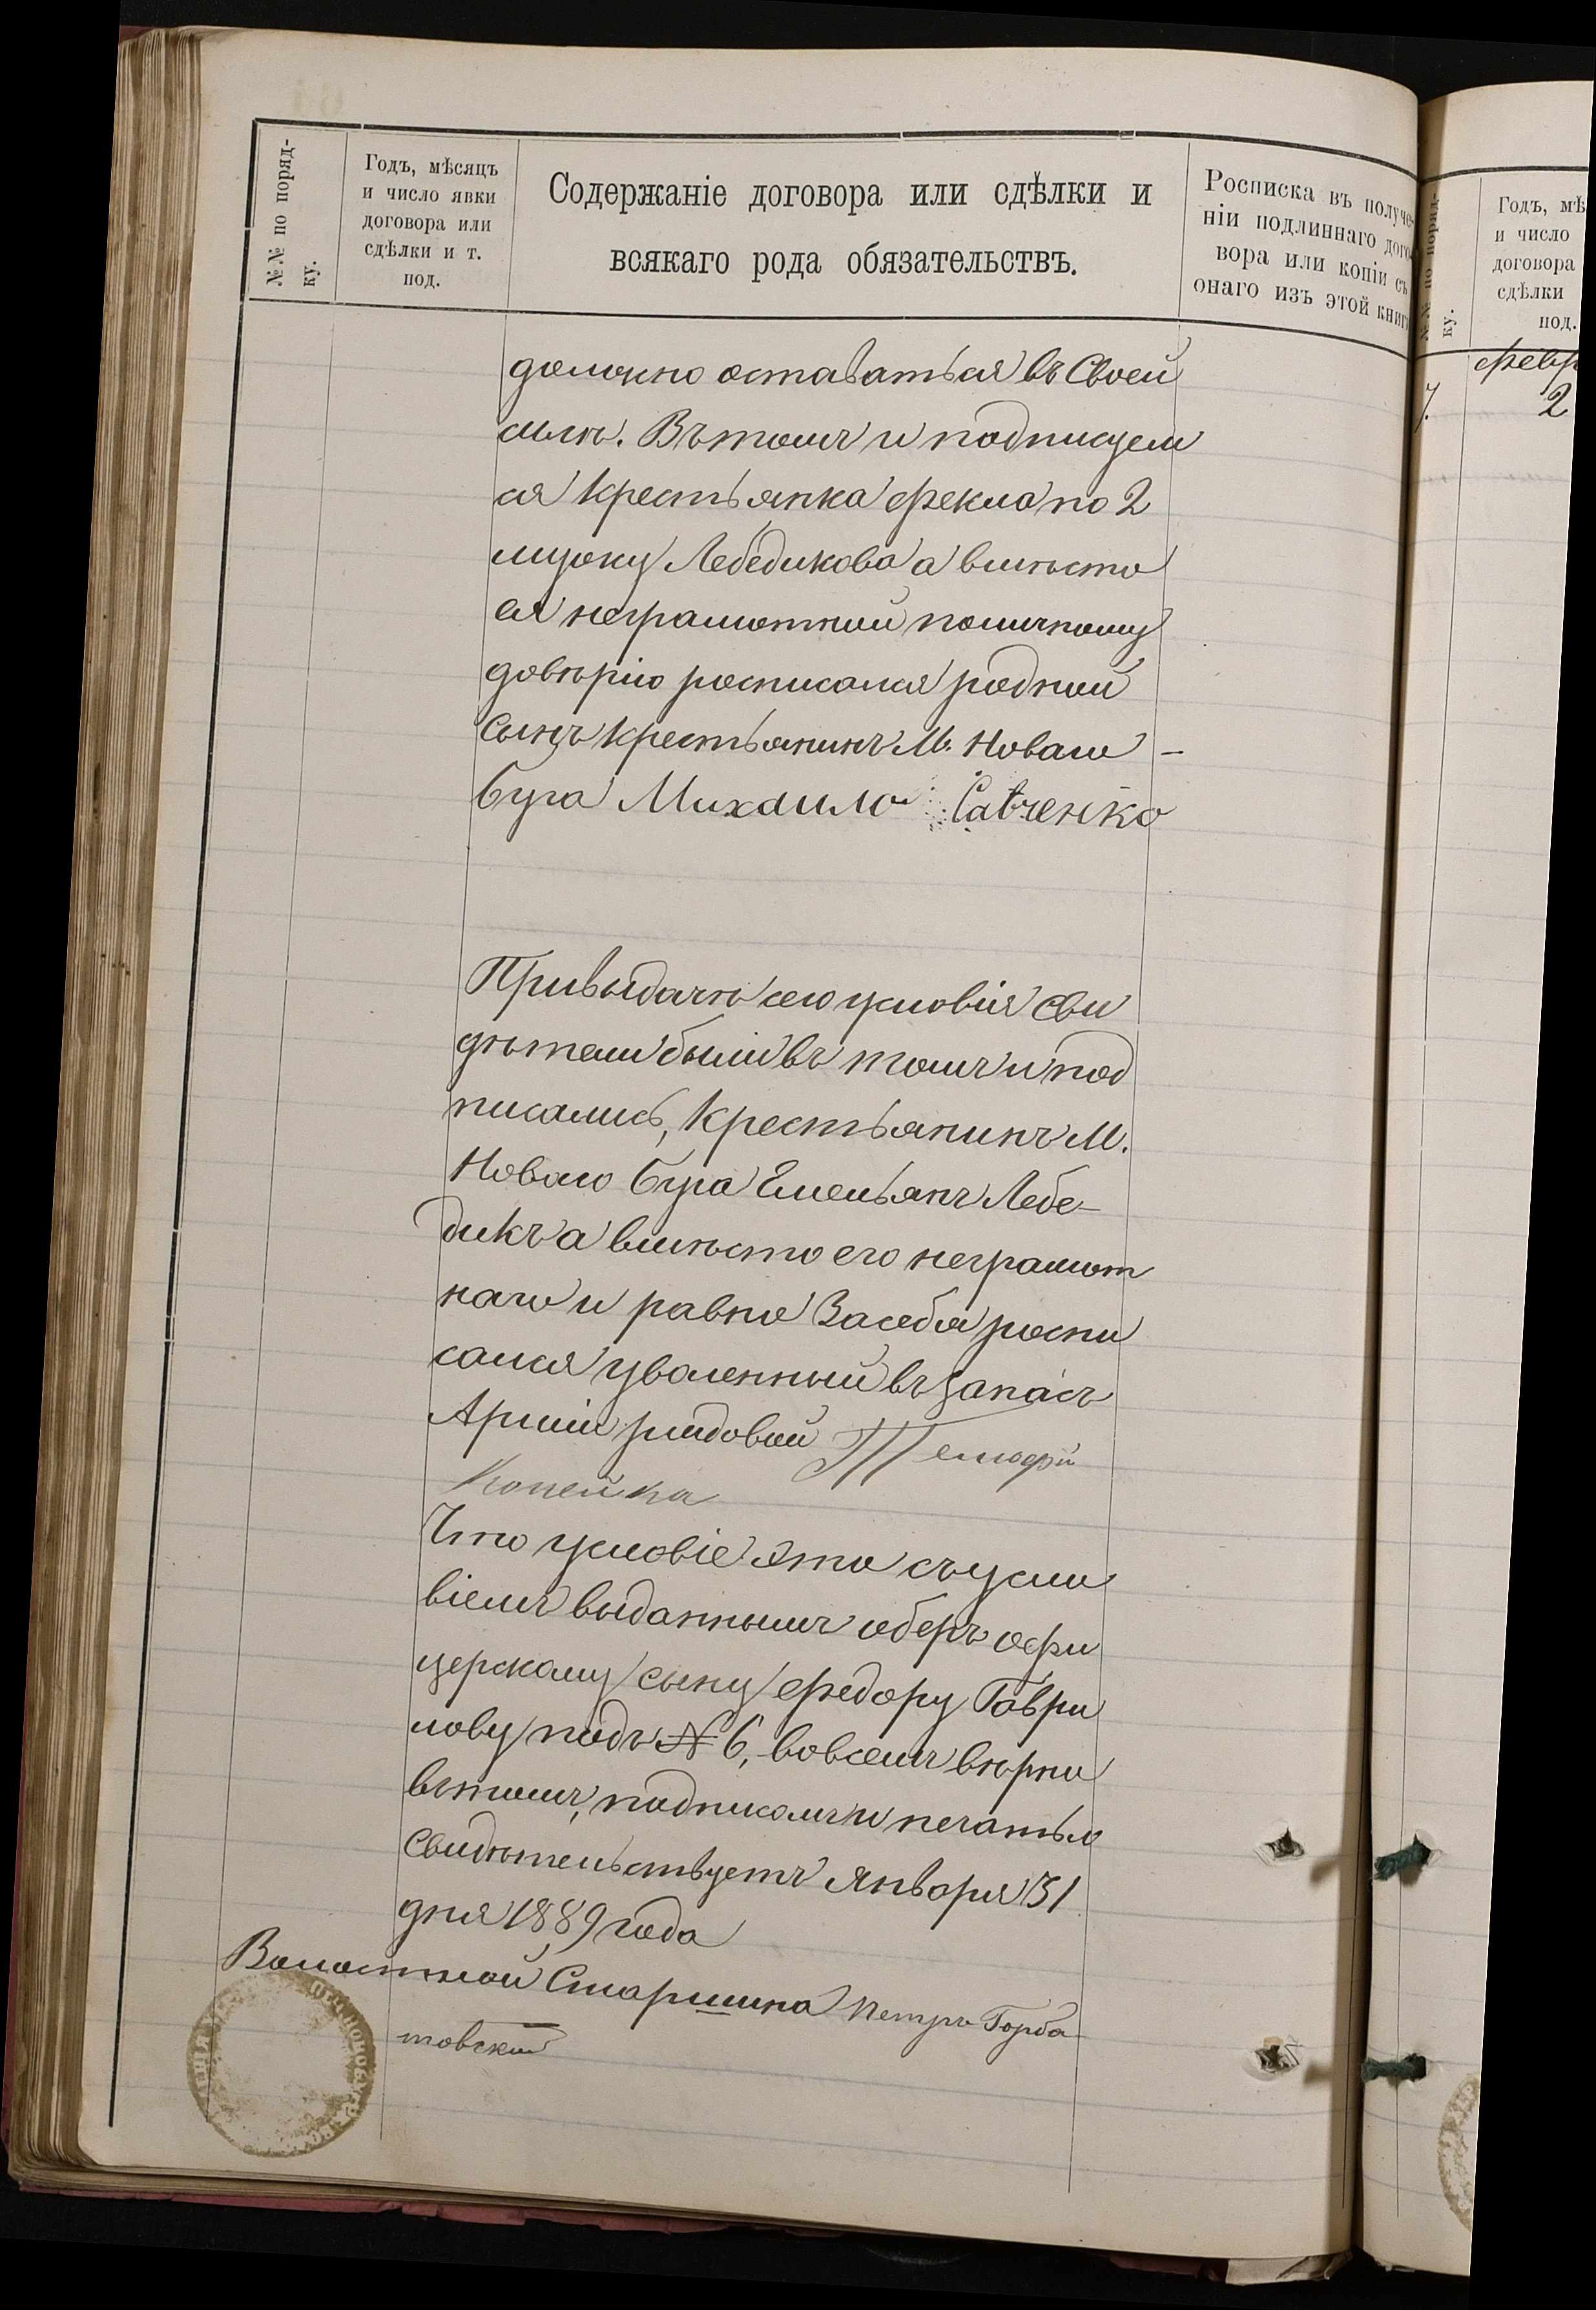 №№ по поряд-
ку.
Годъ, мѣсяцъ
и число явки
договора или
сдѣлки и т.
под.
Содержаніе договора или сдѣлки и
всякаго рода обязательствъ.
Росписка въ получе-
ніи подлиннаго дого
вора или копіи съ
онаго изъ этой книг
должно оставаться въ Своей
силѣ. Въ томъ и подписуем
ся Крестьянка Фекла по 2
мужу Лебедикова а вмѣсто
ея неграмотной по личному
довѣрію росписался родной
Сынъ Крестьянинъ М. Новаго –
Буга Михаило Савченко
При выдачѣ сего условія сви
дѣтели были въ томъ и под
писались, Крестьянинъ М.
Новаго Буга Емельянъ Лебе-
дикъ а вмѣсто его неграмот
наго и равно За себя роспи
сался уволенный въ запасъ
Арміи рядовой Тимофій
Копейка
Что условіе это съ усло
віемъ выданнымъ оберъ офи
церскому сыну Федору Гаври
лову подъ № 6, во всемъ вѣрно
въ томъ, подписомъ и печатью
Свидѣтельствуетъ Января 31
дня 1889 года
Волостной Старшина Петръ Горба
товскій
№№ по поряд-
ку.
Годъ, мѣ
и число
договора
сдѣлки
под.
7.
февр
2